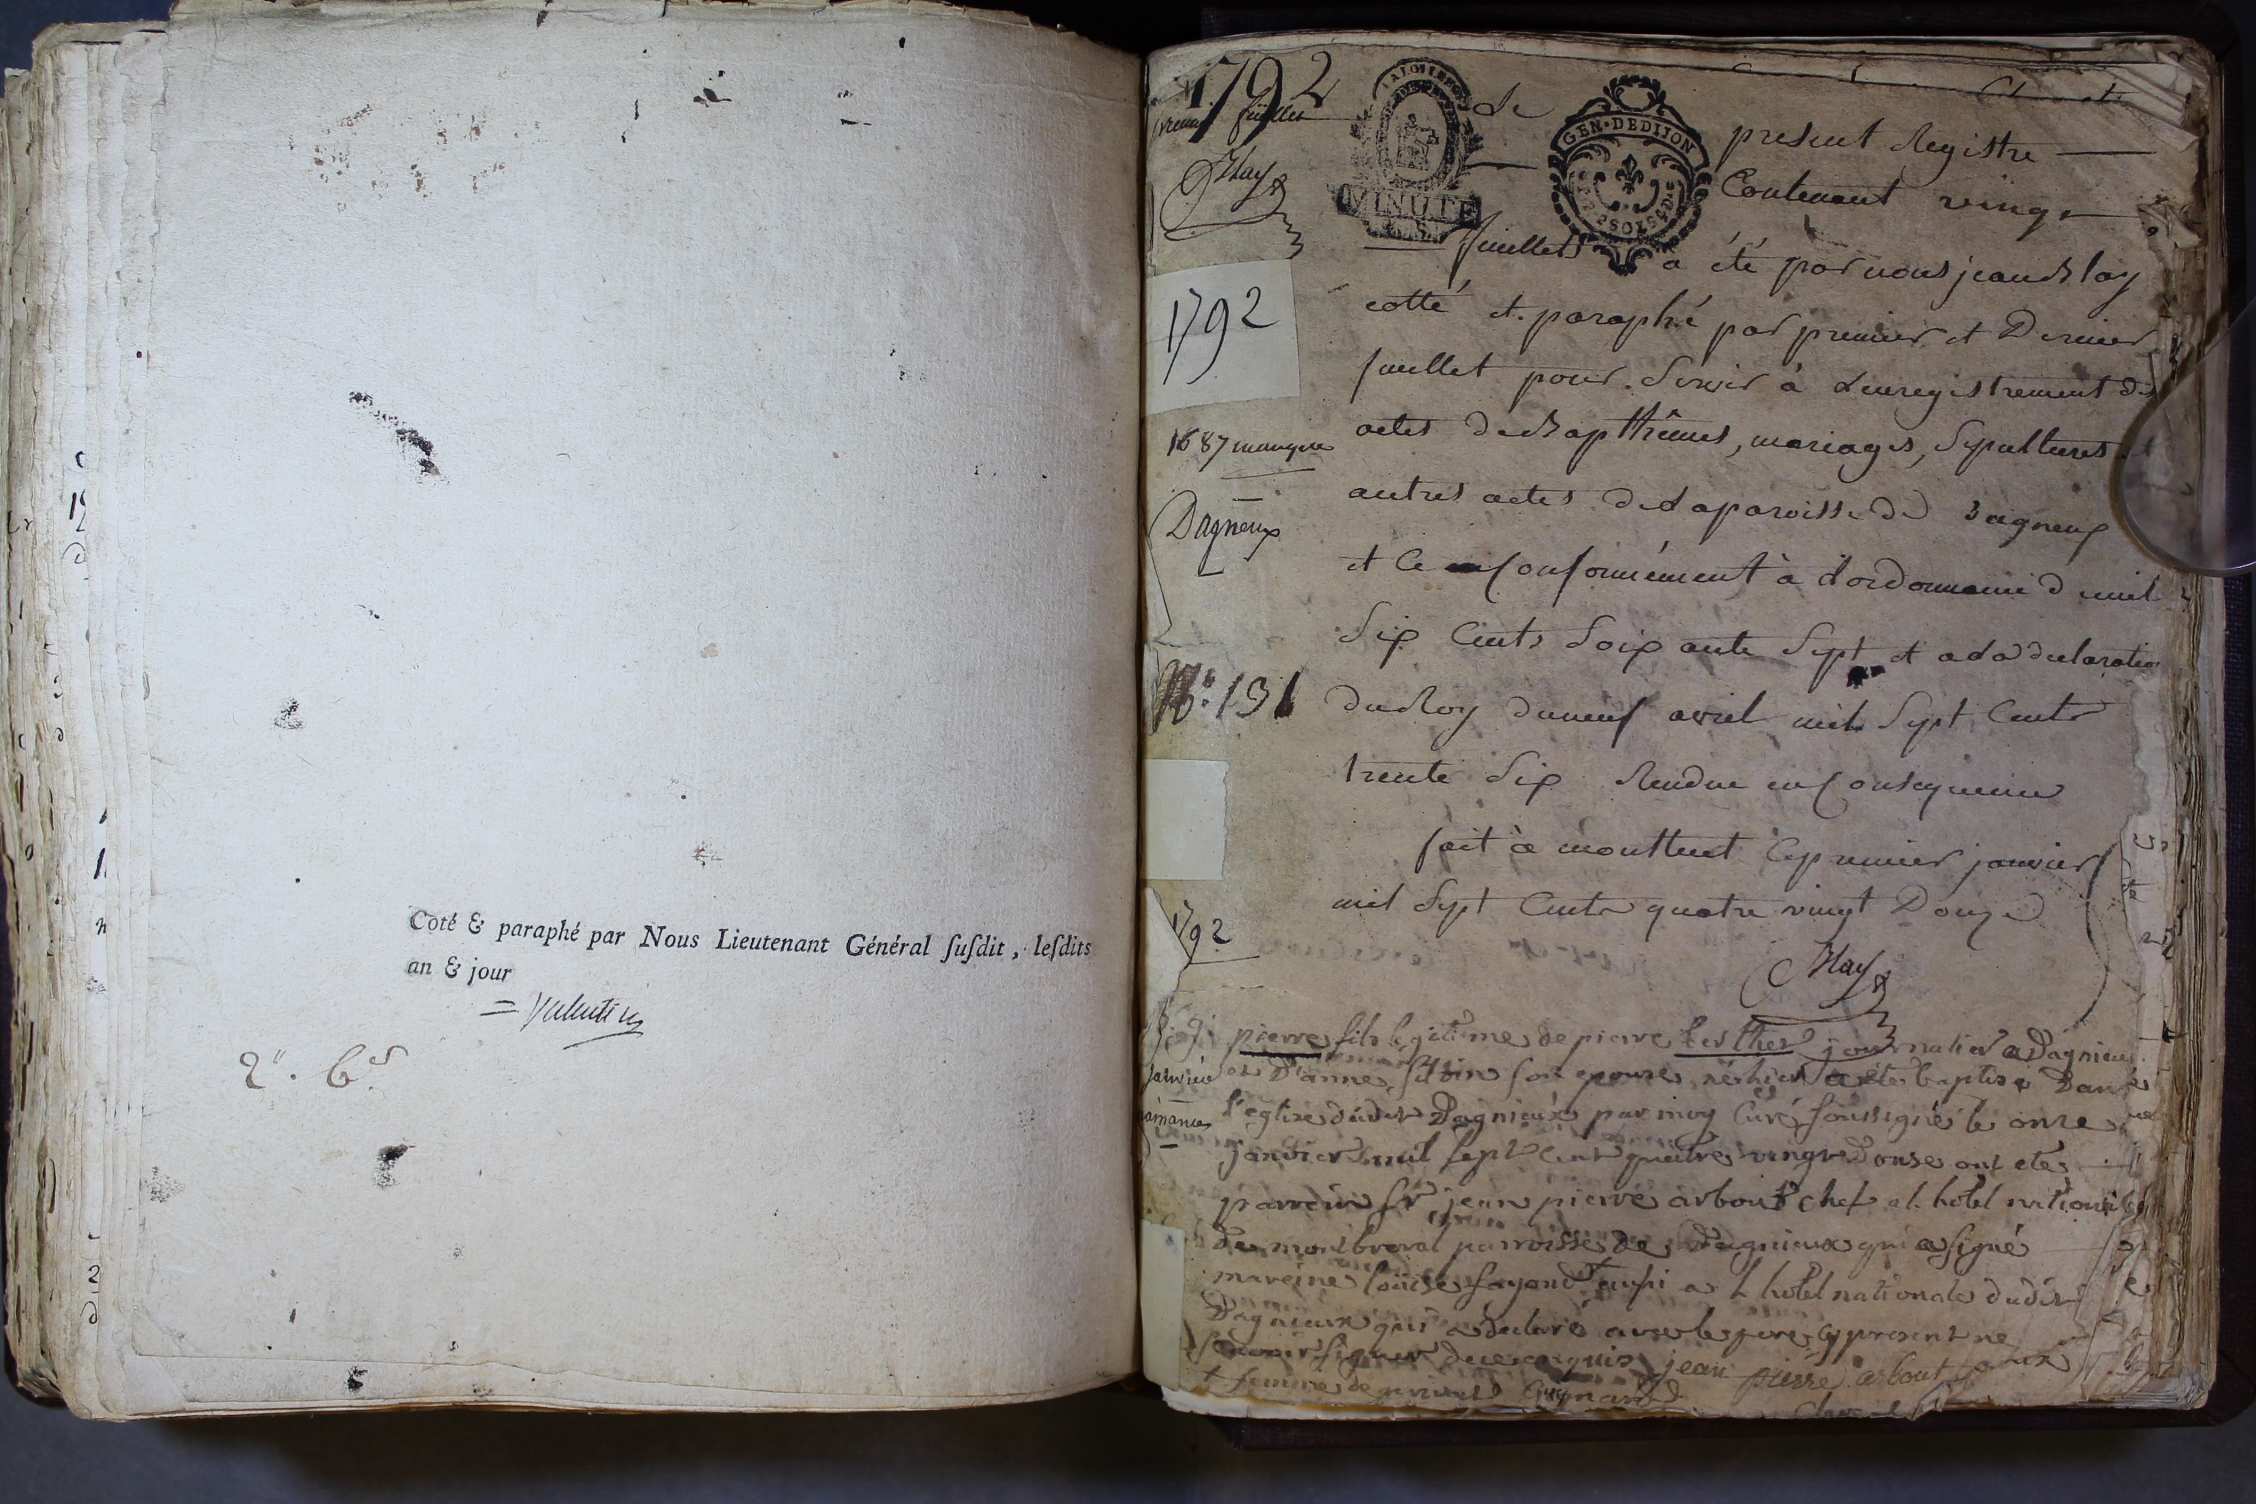 Coté & paraphé par Nous Lieutenant Général ſuſdit, leſdits
an & jour
Valentin
1792
premier feuillet
Hay
1792
1687 manque
Dagneux
N.º 131
1792
MINUTE
GEN. DE DIJON
Le
present Registre
Contenant vingt
feuillets a été par nous jean Blay
cotté et paraphé par premier et Dernier
feuillet pour Servir à Lenregistrement des
actes de Bapthêmes, mariages, Sepultures et
autres actes de La paroisse de Dagneux
et Ce Conformément à L'ordonnance de mil
Six Cents Soixante Sept et a La declaration
du Roy du neuf avril mil Sept Cents
trente Six Rendue en Consequence
fait à Montluel Ce premier janvier
mil Sept Cents quatre vingt Douze
janvier
pierre fils legitime de pierre journalier a Dagnieux
et D'anne son epouse né hier a ete baptisé Dans
l'eglise dudit Dagnieux par moy Curé soussigné le onze
janvier mil sept cent quatre vingt Douse ont eté
parrein Sr jean pierre arbout chef a l'hotel national
de montbreval parroisse de Dagnieux qui a signé
mareine Loüise fayand aussi a L'hotel nationale dudit
Dagnieux qui a declaré avec le pere cy present ne
scavoir signer de ce enquis jean pierre arbout